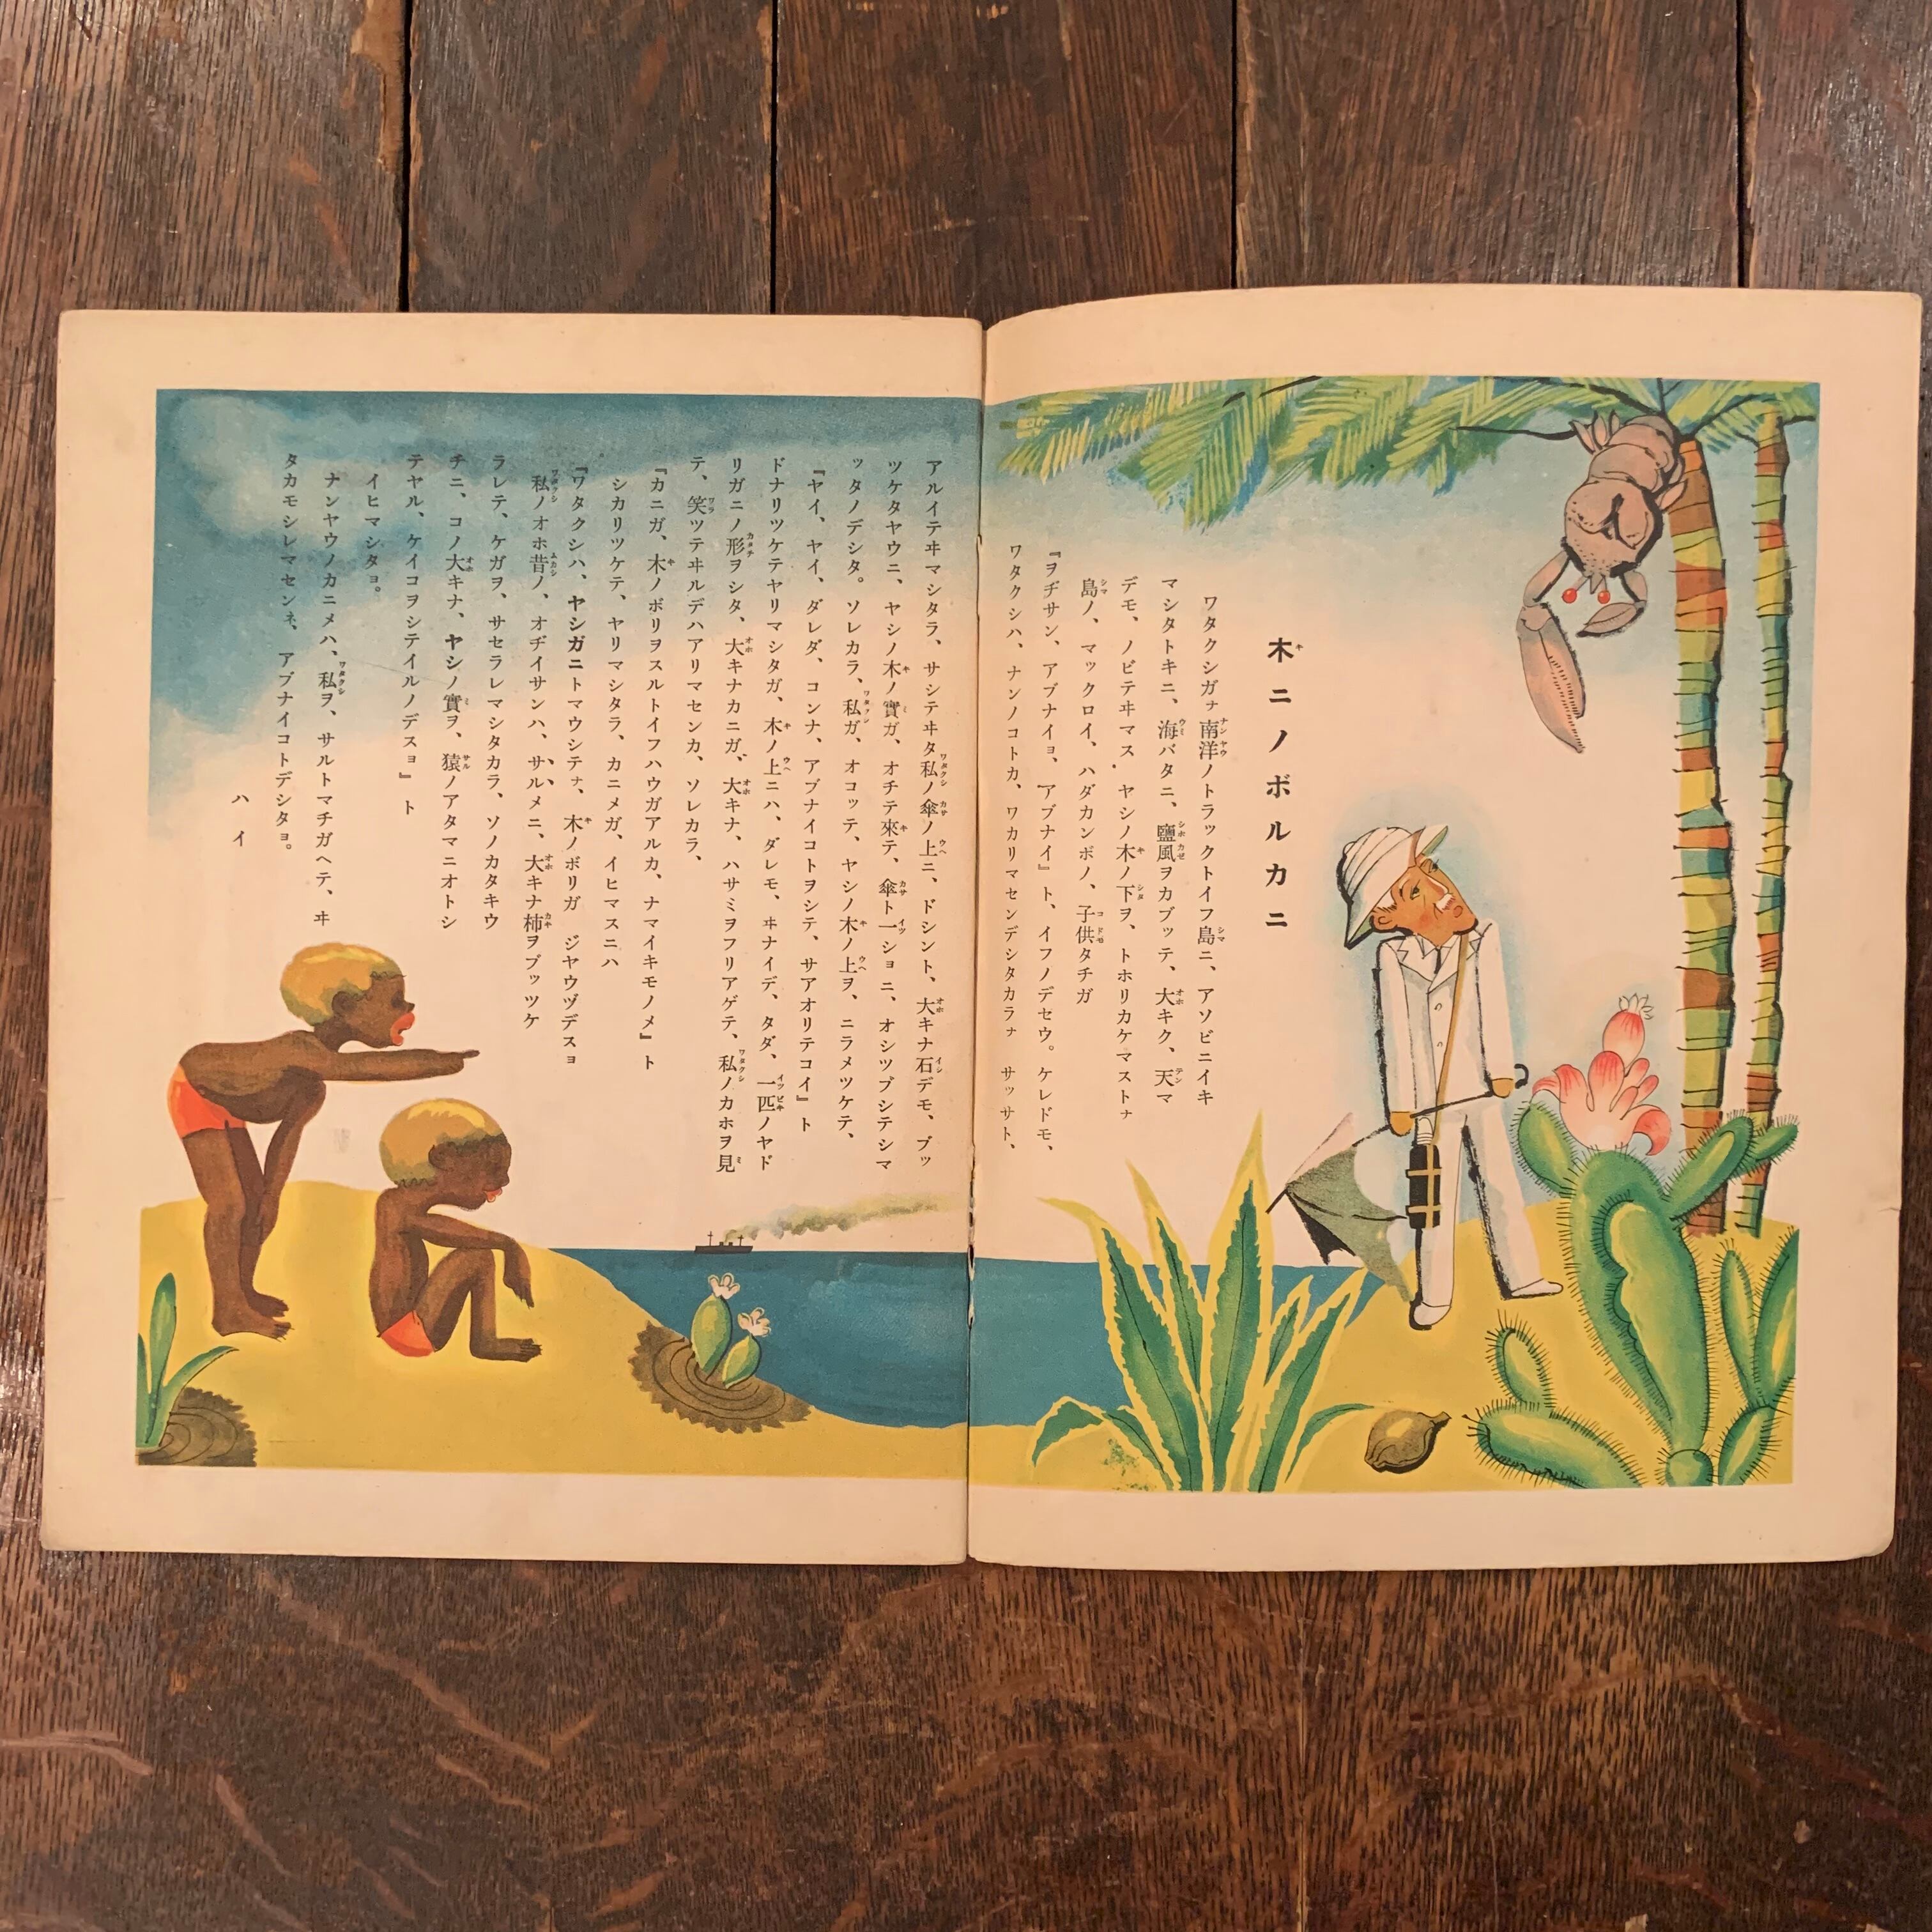 木ニノボルカニ
ワタクシガナ南洋ノトラックトイフ島ニ、アソビニイキ
マシタトキニ、海バタニ、鹽風ヲカブッテ、大キク、天マ
デモ、ノビテヰマス、ヤシノ木ノ下ヲ、トホリカケマストナ
島ノ、マックロイ、ハダカンボノ、子供タチガ
『ヲヂサン、アブナイョ、アブナイ』ト、イフノデセウ。ケレドモ、
ワタクシハ、ナンノコトカ、ワカリマセンデシタカラナ サッサト、
アルイテヰマシタラ、サシテヰタ私ノ傘ノ上ニ、ドシント、大キナ石デモ、ブッ
ツケタヤウニ、ヤシノ木ノ實ガ、オチテ來テ、傘ト一ショニ、オシツブシテシマ
ッタノデシタ。ソレカラ、私ガ、オコッテ、ヤシノ木ノ上ヲ、ニラメツケテ、
『ヤイ、ヤイ、ダレダ、コンナ、アブナイコトヲシテ、サアオリテコイ』ト
ドナリツケテヤリマシタガ、木ノ上ニハ、ダレモ、ヰナイデ、タダ、一匹ノヤド
リガニノ形ヲシタ、大キナカニガ、大キナ、ハサミヲフリアゲテ、私ノカホヲ見
テ、笑ツテヰルデハアリマセンカ、ソレカラ、
『カニガ、木ノボリヲスルトイフハウガアルカ、ナマイキモノメ』ト
シカリツケテ、ヤリマシタラ、カニメガ、イヒマスニハ
『ワタクシハ、ヤシガニトマウシテナ、木ノボリガ ジヤウヅデスョ
私ノオホ昔ノ、オヂイサンハ、サルメニ、大キナ柿ヲブッツケ
ラレテ、ケガヲ、サセラレマシタカラ、ソノカタキウ
チニ、コノ大キナ、ヤシノ實ヲ、猿ノアタマニオトシ
テヤル、ケイコヲシテイルノデスョ』ト
イヒマシタョ。
ナンヤウノカニメハ、私ヲ、サルトマチガヘテ、ヰ
タカモシレマセンネ、アブナイコトデシタョ。
ハイ